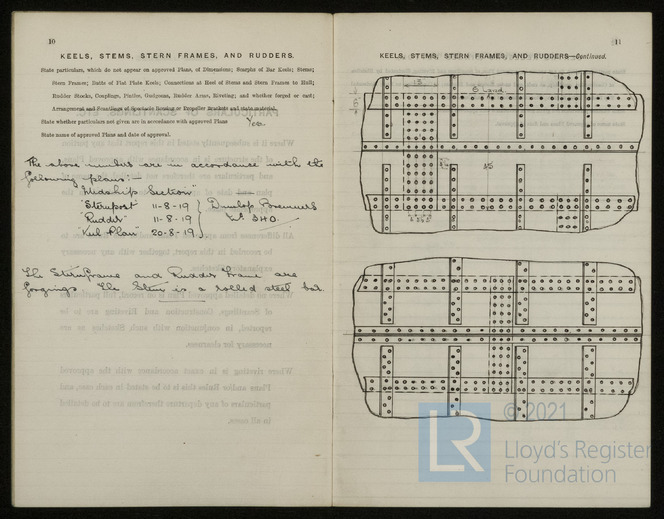 10
KEELS, STEMS, STERN FRAMES, AND RUDDERS.
State particulars, which do not appear on approved Plans, of Dimensions; Scarphs of Bar Keels; Stems;
Stern Frames; Butts of Flat Plate Keels; Connections at Heel of Stems and Stern Frames to Hull;
Rudder Stocks, Couplings, Pintles, Gudgeons, Rudder Arms, Riveting; and whether forged or cast;
Arrangement and Scantlings of Spectacle Bossing or Propeller Brackets and state material.
State whether particulars not given are in accordance with approved Plans Yes.
State name of approved Plans and date of approval.
The above members are in accordance with the
following plans:-
"Midship Section"
"Sternpost 11-8-19
"Rudder" 11-8-19
"Keel Plan" 20-8-19
Dunlop Bremners
The Sternframe and Rudder Frame are
forgings. The Stem is a rolled steel bar.
11
KEELS, STEMS, STERN FRAMES, AND RUDDERS—Continued.
© 2021
LR
Lloyd's Register
Foundation